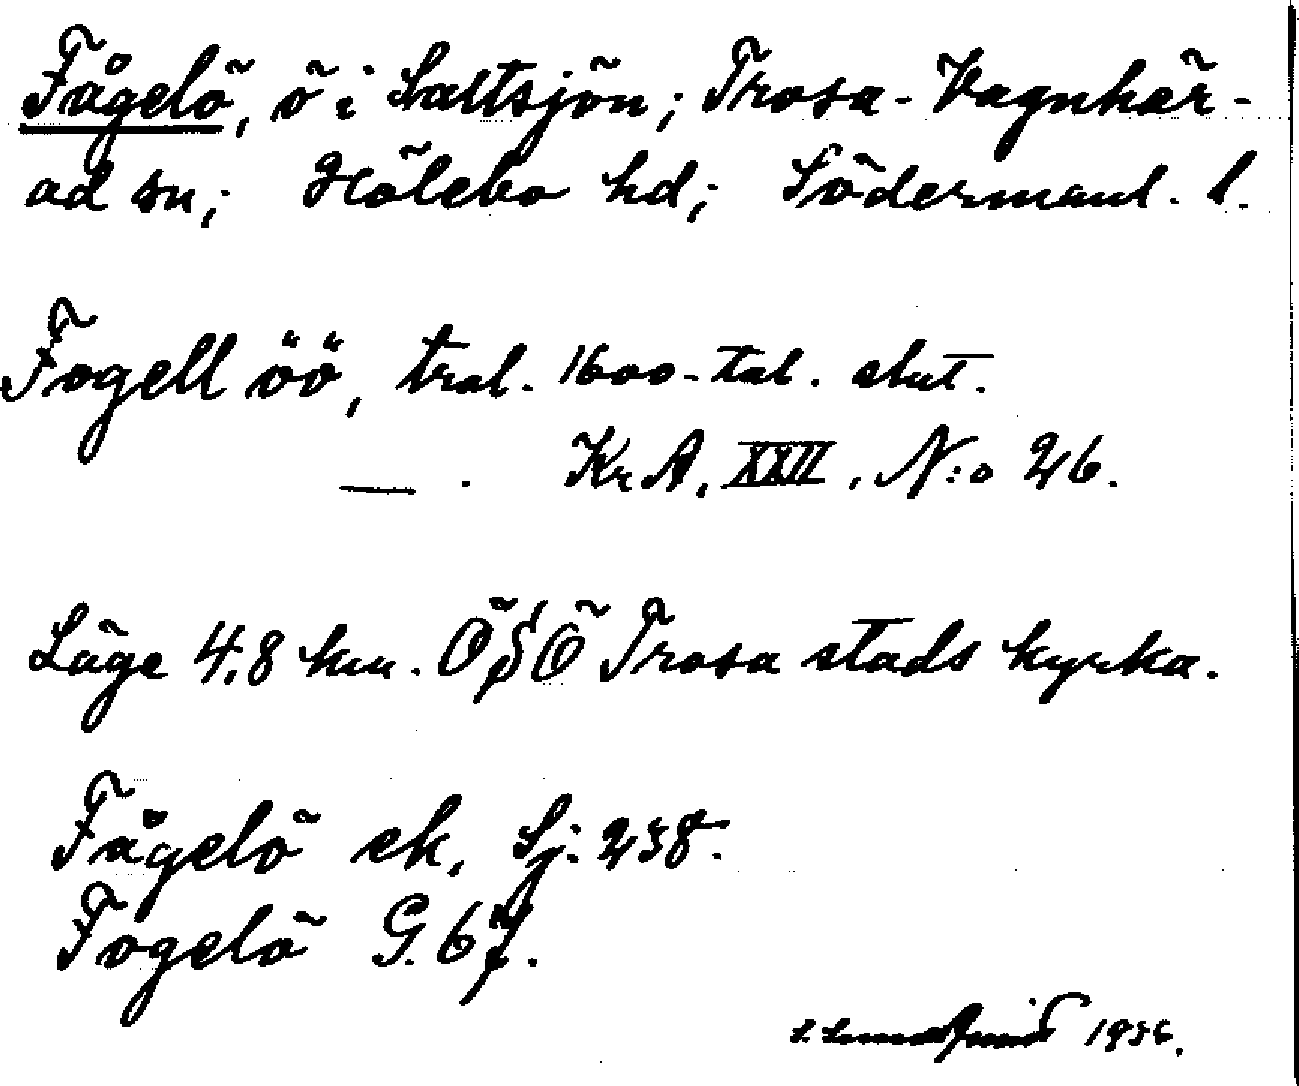 Fågelö, ö i Saltsjön; Trosa-Vagnhär-
ad sn; Hölebo hd; Södermanl. l.
Fogell öö, tral. 1600-tal. slut.
— . KrA, XXII, N:o 26.
Läge 4,8 km. ÖSÖ Trosa stads kyrka.
Fågelö ek, Sj: 238.
Fogelö G. 67.
1936.